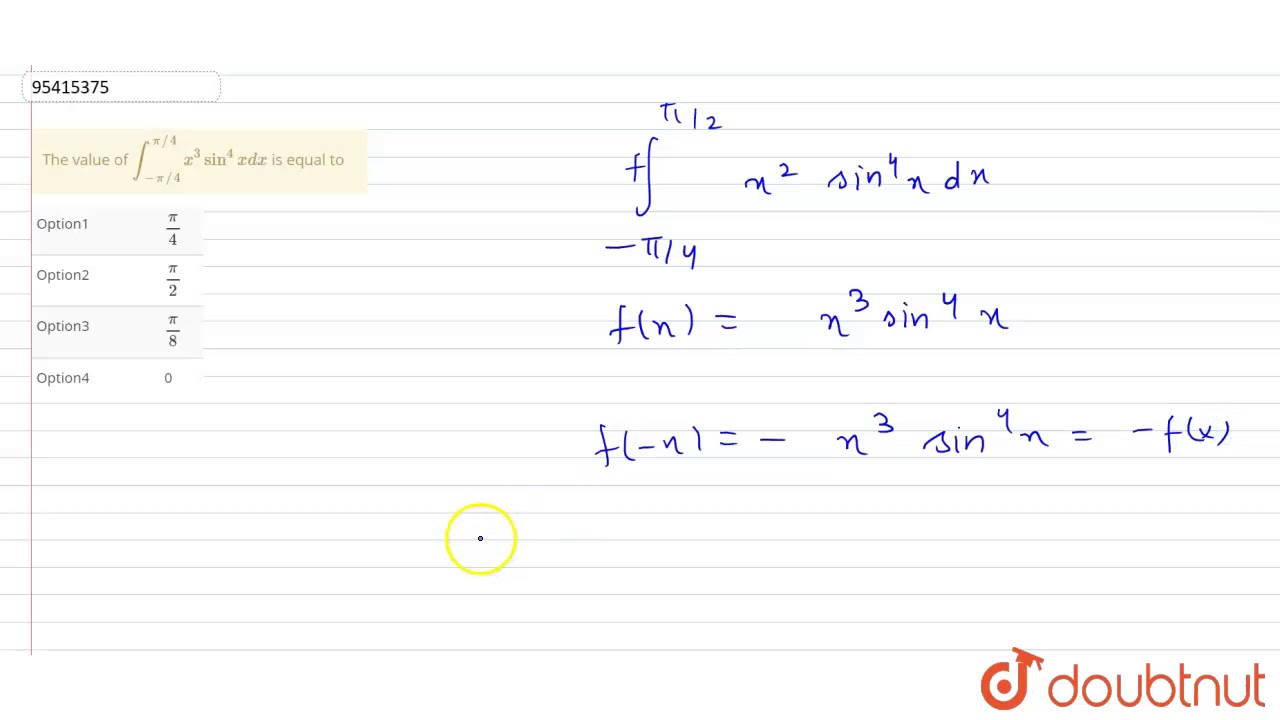 95415375
The value of ∫_{-π/4}^{π/4} x³ sin⁴ xdx is equal to
Option1 π/4
Option2 π/2
Option3 π/8
Option4 0
∫_{-π/4}^{π/2} x² sin⁴x dx
f(x) = x³ sin⁴ x
f(-x) = - x³ sin⁴x = -f(x)
doubtnut